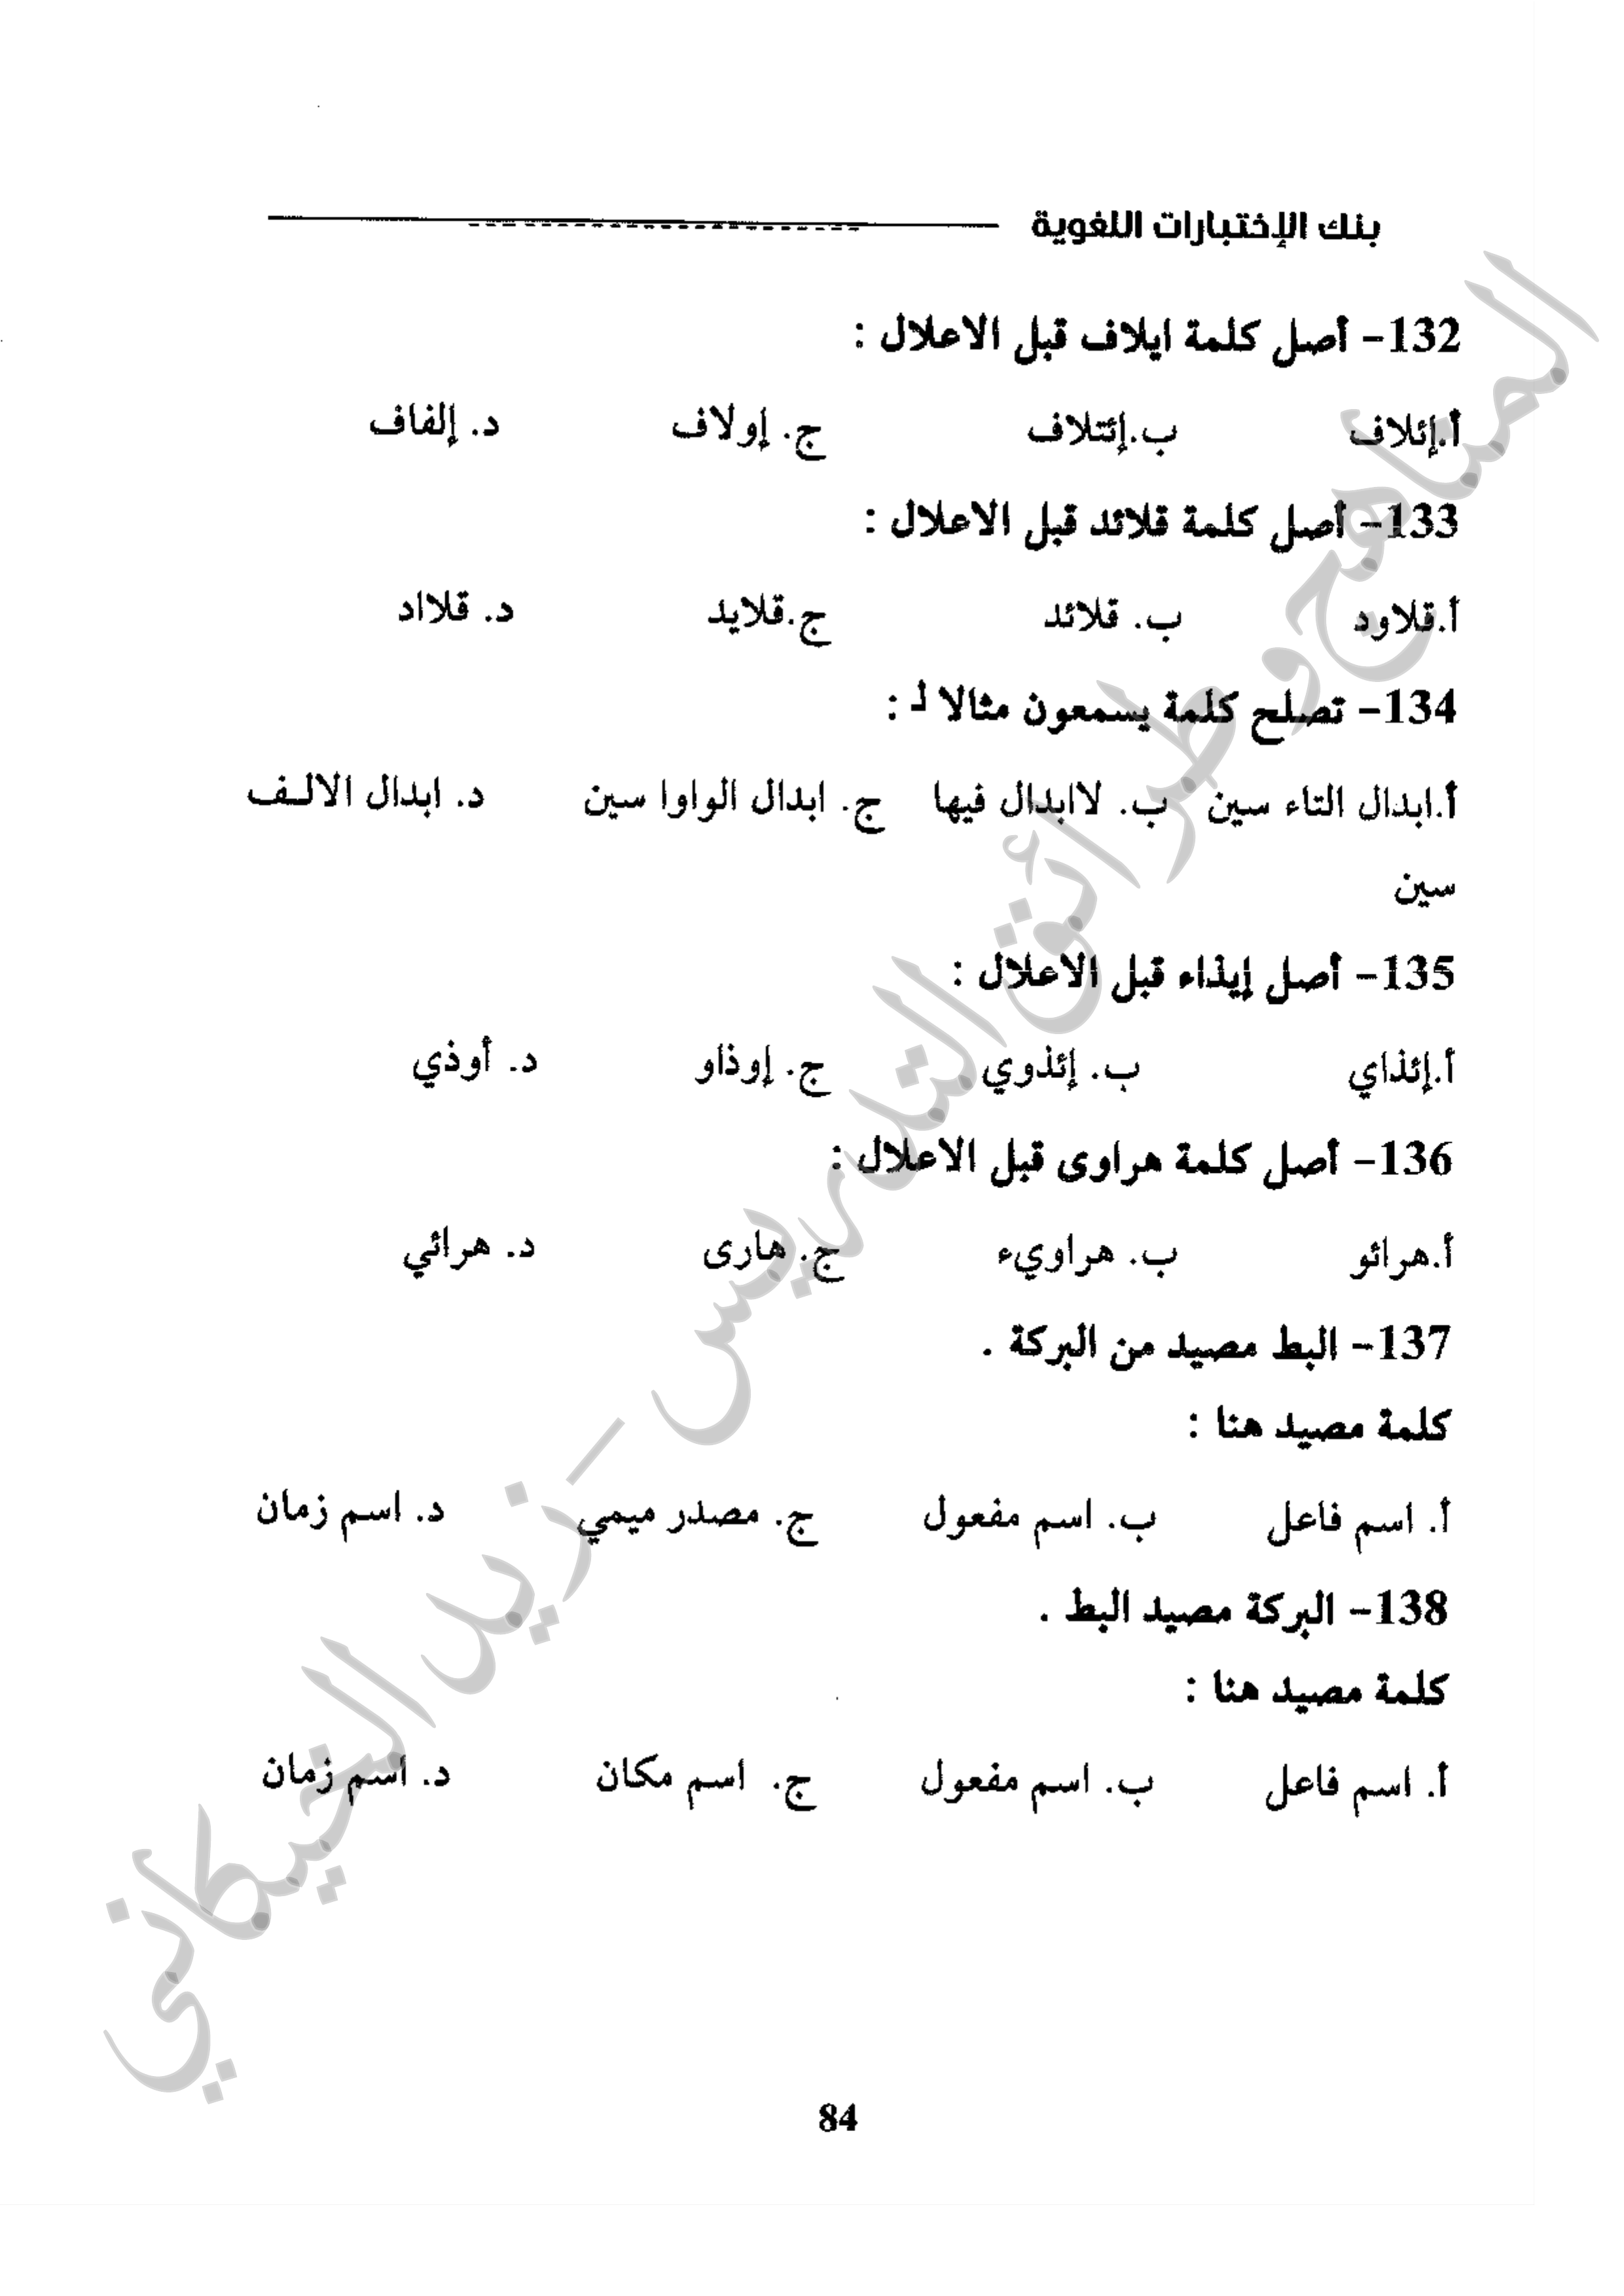 بنك الإختبارات اللغوية
132- أصل كلمة ايلاف قبل الاعلال :
أ.إئلاف ب.إئتلاف ج. إولاف د. إلفاف
133- أصل كلمة قلائد قبل الاعلال :
أ.قلاود ب. قلائد ج.قلايد د. قلااد
134- تصلح كلمة يسمعون مثالا لـ :
أ.ابدال التاء سين ب. لاابدال فيها ج. ابدال الواوا سين د. ابدال الالف
سين
135- أصل إيذاء قبل الاعلال :
أ.إئذاي ب. إئذوي ج. إوذاو د. أوذي
136- أصل كلمة هراوى قبل الاعلال :
أ.هرائو ب. هراويء ج. هارى د. هرائي
137- البط مصيد من البركة .
كلمة مصيد هنا :
أ. اسم فاعل ب. اسم مفعول ج. مصدر ميمي د. اسم زمان
138- البركة مصيد البط .
كلمة مصيد هنا :
أ. اسم فاعل ب. اسم مفعول ج. اسم مكان د. اسم زمان
المناهج وطرائق التدريس - زيد الخيكاني
84